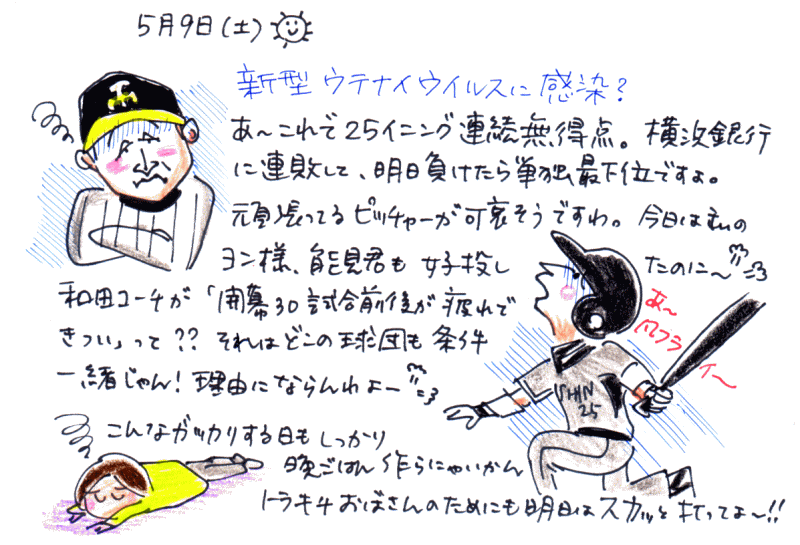 5月9日(土)
新型ウテナイウイルスに感染?
あ〜これで25イニング連続無得点。横浜銀行
に連敗して、明日負けたら単独最下位ですよ。
頑張ってるピッチャーが可哀そうですわ。今日は
ヨン様、能見君も好投し
たのに〜
和田コーチが「開幕30試合前後が疲れで
きつい」って?? それはどこの球団も条件
一緒じゃん!理由にならんわよー
あ〜
凡フラ
イ〜
SHIN
25
こんなガッカリする日もしっかり
晩ごはん作らにゃいかん
トラキチおばさんのためにも明日はスカッと打ってよ〜!!